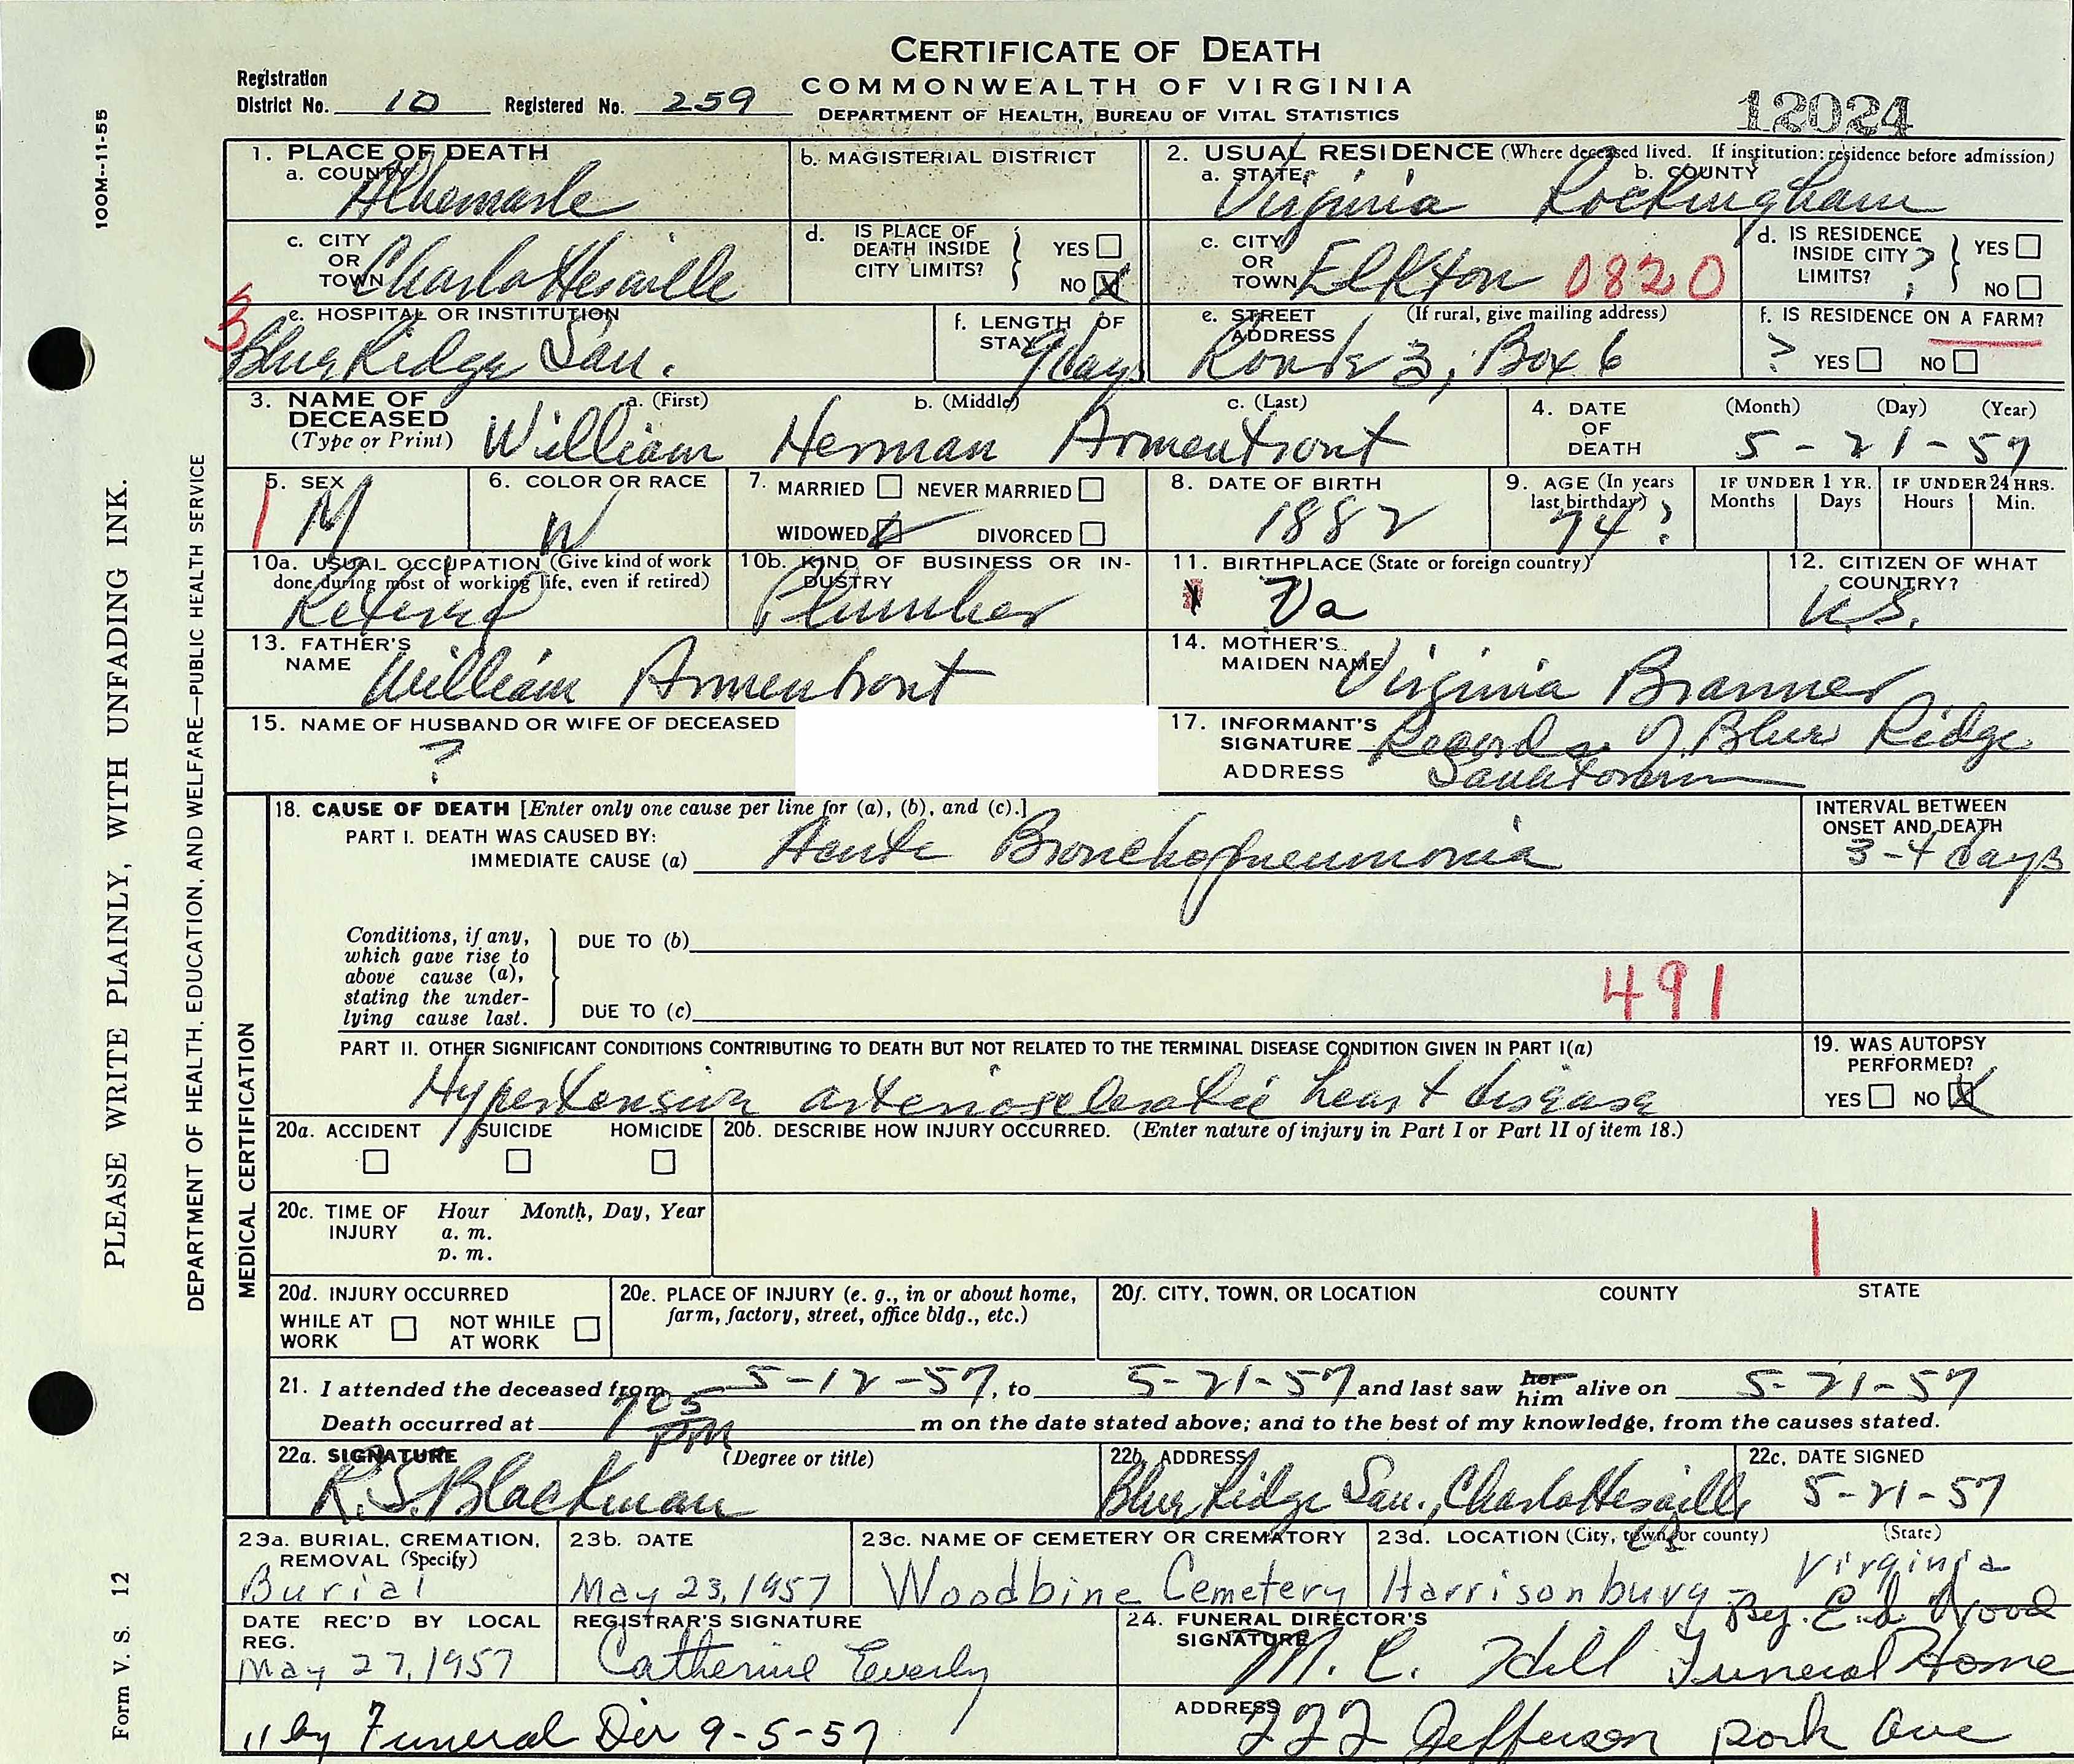 CERTIFICATE OF DEATH
COMMONWEALTH OF VIRGINIA
DEPARTMENT OF HEALTH, BUREAU OF VITAL STATISTICS
Registration
District No. 10 Registered No. 259
12024
100M--11-55
PLEASE WRITE PLAINLY, WITH UNFADING INK.
DEPARTMENT OF HEALTH, EDUCATION, AND WELFARE—PUBLIC HEALTH SERVICE
Form V. S. 12
1. PLACE OF DEATH
a. COUNTY
Albemarle
b. MAGISTERIAL DISTRICT
2. USUAL RESIDENCE (Where deceased lived. If institution: residence before admission)
a. STATE b. COUNTY
Virginia Rockingham
c. CITY
OR
TOWN Charlottesville
d. IS PLACE OF
DEATH INSIDE
CITY LIMITS?
YES
NO X
c. CITY
OR
TOWN Elkton 0820
d. IS RESIDENCE
INSIDE CITY ?
LIMITS?
YES
NO
e. HOSPITAL OR INSTITUTION
Blue Ridge San.
f. LENGTH OF
STAY 9 days
e. STREET (If rural, give mailing address)
ADDRESS
Route 3, Box 6
f. IS RESIDENCE ON A FARM?
? YES NO
3. NAME OF
DECEASED
(Type or Print)
a. (First) b. (Middle) c. (Last)
William Herman Armentrout
4. DATE
OF
DEATH
(Month) (Day) (Year)
5 - 21 - 57
5. SEX
M
6. COLOR OR RACE
W
7. MARRIED NEVER MARRIED
WIDOWED DIVORCED
8. DATE OF BIRTH
1882
9. AGE (In years
last birthday)
74 ?
IF UNDER 1 YR.
Months Days
IF UNDER 24 HRS.
Hours Min.
10a. USUAL OCCUPATION (Give kind of work
done during most of working life, even if retired)
Retired
10b. KIND OF BUSINESS OR IN-
DUSTRY
Plumber
11. BIRTHPLACE (State or foreign country)
Va
12. CITIZEN OF WHAT
COUNTRY?
U.S.
13. FATHER'S
NAME William Armentrout
14. MOTHER'S
MAIDEN NAME Virginia Branner
15. NAME OF HUSBAND OR WIFE OF DECEASED
?
17. INFORMANT'S
SIGNATURE Records of Blue Ridge
ADDRESS Sanatorium
MEDICAL CERTIFICATION
18. CAUSE OF DEATH [Enter only one cause per line for (a), (b), and (c).]
PART I. DEATH WAS CAUSED BY:
IMMEDIATE CAUSE (a) Acute Bronchopneumonia
INTERVAL BETWEEN
ONSET AND DEATH
3-4 days
Conditions, if any,
which gave rise to
above cause (a),
stating the under-
lying cause last.
DUE TO (b)
DUE TO (c)
491
PART II. OTHER SIGNIFICANT CONDITIONS CONTRIBUTING TO DEATH BUT NOT RELATED TO THE TERMINAL DISEASE CONDITION GIVEN IN PART I(a)
Hypertensive arteriosclerotic heart disease
19. WAS AUTOPSY
PERFORMED?
YES NO X
20a. ACCIDENT SUICIDE HOMICIDE
20b. DESCRIBE HOW INJURY OCCURRED. (Enter nature of injury in Part I or Part II of item 18.)
20c. TIME OF Hour Month, Day, Year
INJURY a. m.
p. m.
20d. INJURY OCCURRED
WHILE AT NOT WHILE
WORK AT WORK
20e. PLACE OF INJURY (e. g., in or about home,
farm, factory, street, office bldg., etc.)
20f. CITY, TOWN, OR LOCATION COUNTY STATE
21. I attended the deceased from 5-12-57, to 5-21-57 and last saw her him alive on 5-21-57
Death occurred at 7 05 PM m on the date stated above; and to the best of my knowledge, from the causes stated.
22a. SIGNATURE (Degree or title)
R.S. Blackman
22b. ADDRESS
Blue Ridge San., Charlottesville
22c. DATE SIGNED
5-21-57
23a. BURIAL, CREMATION,
REMOVAL (Specify)
Burial
23b. DATE
May 23, 1957
23c. NAME OF CEMETERY OR CREMATORY
Woodbine Cemetery
23d. LOCATION (City, town, or county) (State)
Harrisonburg - Virginia
DATE REC'D BY LOCAL
REG.
May 27, 1957
REGISTRAR'S SIGNATURE
Catherine Everly
24. FUNERAL DIRECTOR'S
SIGNATURE
By. E.L. Wood
M. C. Hill Funeral Home
by Funeral Dir 9-5-57
ADDRESS
222 Jefferson park ave